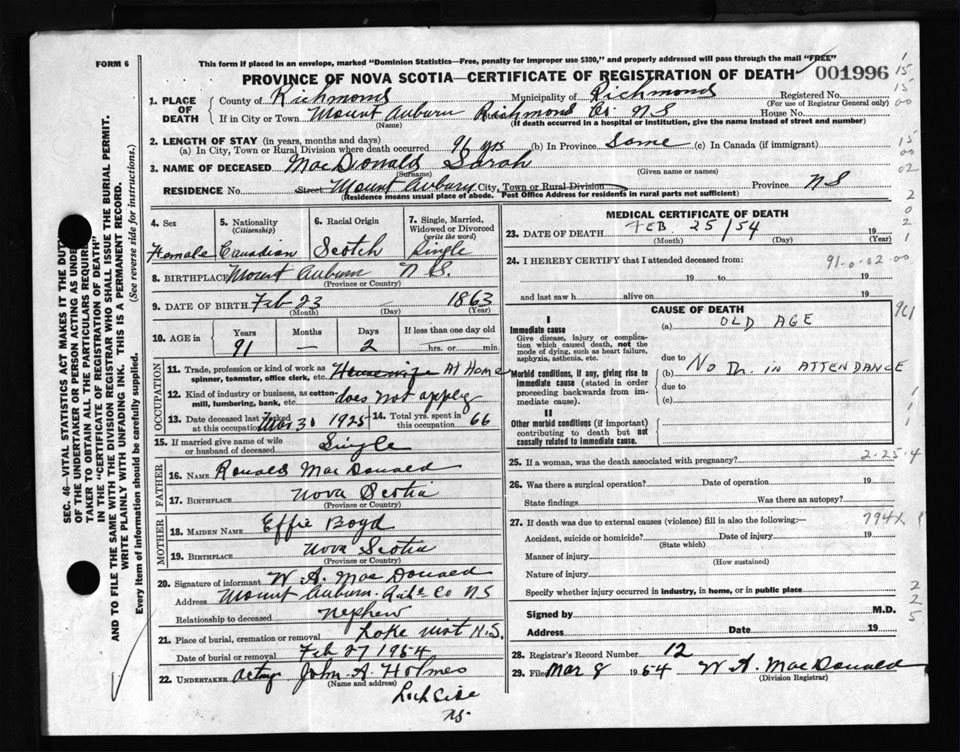 FORM 6
This form if placed in an envelope, marked "Dominion Statistics—Free, penalty for improper use $300," and properly addressed will pass through the mail "FREE"
PROVINCE OF NOVA SCOTIA—CERTIFICATE OF REGISTRATION OF DEATH 001996
1. PLACE OF DEATH
County of Richmond Municipality of Richmond Registered No.
(For use of Registrar General only)
If in City or Town Mount Auburn Richmond Co. N.S House No.
(Name) (If death occurred in a hospital or institution, give the name instead of street and number)
2. LENGTH OF STAY (in years, months and days)
(a) In City, Town or Rural Division where death occurred 96 yrs (b) In Province Same (c) In Canada (if immigrant)
3. NAME OF DECEASED MacDonald Sarah
(Surname) (Given name or names)
RESIDENCE No. Street Mount Auburn City, Town or Rural Division Province NS
(Residence means usual place of abode. Post Office Address for residents in rural parts not sufficient)
4. Sex
Female
5. Nationality
(Citizenship)
Canadian
6. Racial Origin
Scotch
7. Single, Married, Widowed or Divorced
(write the word)
Single
8. BIRTHPLACE Mount Auburn N.S.
(Province or Country)
9. DATE OF BIRTH Feb 23 1863
(Month) (Day) (Year)
10. AGE in Years Months Days If less than one day old
91 — 2 hrs. or min.
OCCUPATION
11. Trade, profession or kind of work as spinner, teamster, office clerk, etc. Housewife At Home
12. Kind of industry or business, as cotton-mill, lumbering, bank, etc. does not apply
13. Date deceased last worked at this occupation Mar 31 1925
14. Total yrs. spent in this occupation 66
15. If married give name of wife or husband of deceased Single
FATHER
16. NAME Ronald MacDonald
17. BIRTHPLACE Nova Scotia
(Province or Country)
MOTHER
18. MAIDEN NAME Effie Boyd
19. BIRTHPLACE Nova Scotia
(Province or Country)
20. Signature of informant W. A. MacDonald
Address Mount Auburn Co NS
Relationship to deceased nephew
21. Place of burial, cremation or removal N.S.
Date of burial or removal Feb 27 1954
22. UNDERTAKER acting John A Holmes
(Name and address)
NS.
MEDICAL CERTIFICATE OF DEATH
23. DATE OF DEATH FEB 25/54 19
(Month) (Day) (Year)
24. I HEREBY CERTIFY that I attended deceased from: 91-0-02-00
19 to 19
and last saw h alive on 19
CAUSE OF DEATH
I
Immediate cause
Give disease, injury or complication which caused death, not the mode of dying, such as heart failure, asphyxia, asthenia, etc.
(a) OLD AGE
due to
Morbid conditions, if any, giving rise to immediate cause (stated in order proceeding backwards from immediate cause).
(b) NO Dr. IN ATTENDANCE
due to
(c)
II
Other morbid conditions (if important) contributing to death but not causally related to immediate cause.
25. If a woman, was the death associated with pregnancy? 2-25-4
26. Was there a surgical operation? Date of operation 19
State findings Was there an autopsy?
27. If death was due to external causes (violence) fill in also the following:— 794X
Accident, suicide or homicide? Date of injury 19
(State which)
Manner of injury
(How sustained)
Nature of injury
Specify whether injury occurred in industry, in home, or in public place
Signed by M.D.
Address Date 19
28. Registrar's Record Number 12
29. Filed Mar 8 1954 W. A. MacDonald
(Division Registrar)
SEC. 46—VITAL STATISTICS ACT MAKES IT THE DUTY
OF THE UNDERTAKER OR PERSON ACTING AS UNDER-
TAKER TO OBTAIN ALL THE PARTICULARS REQUIRED
IN THE "CERTIFICATE OF REGISTRATION OF DEATH"
AND TO FILE THE SAME WITH THE DIVISION REGISTRAR WHO SHALL ISSUE THE BURIAL PERMIT.
WRITE PLAINLY WITH UNFADING INK. THIS IS A PERMANENT RECORD.
Every item of information should be carefully supplied. (See reverse side for instructions.)